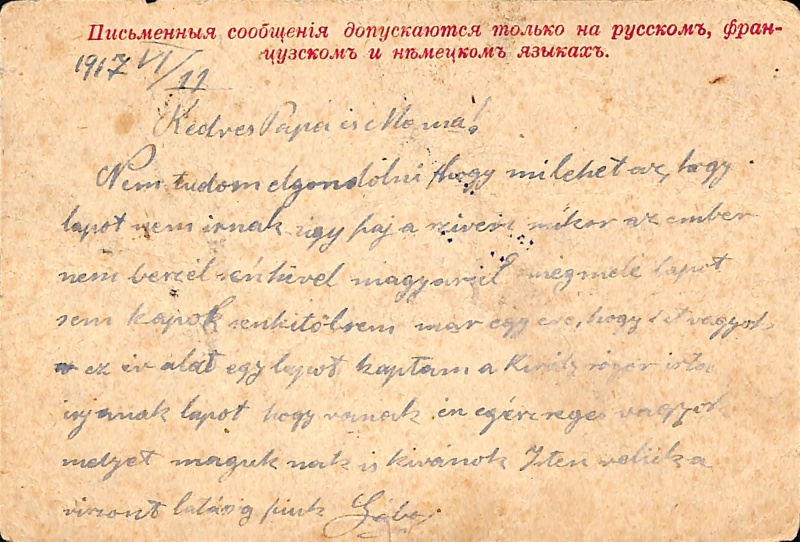 Письменныя сообщенія допускаются только на русскомъ, фран-
цузскомъ и нѣмецкомъ языкахъ.
1917 VI/11
Kedves Papa és Mama!
Nem tudom elgondólni hogy mi lehet az, hogy
lapot nem irnak úgy faj a szivem mikor az ember
nem beszél senkivel magyarúl lapot
sem kapok senkitöl sem mar egy eve, hogy itt vagyok
ez év alat egy lapot kaptam a Király
irjanak lapot hogy vanak én egésséges vagyok
melyet maguknak is kivánok Isten velük a
viszont latásig fiuk